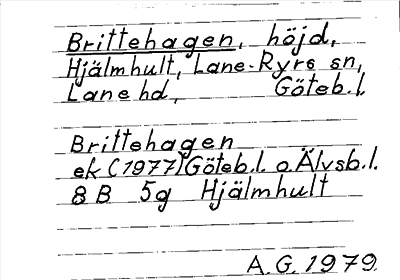 Brittehagen, höjd,
Hjälmhult, Lane-Ryrs sn,
Lane hd, Göteb.l.
Brittehagen
ek (1977) Göteb.l. o. Älvsb.l.
8 B 5g Hjälmhult
A.G. 1979.